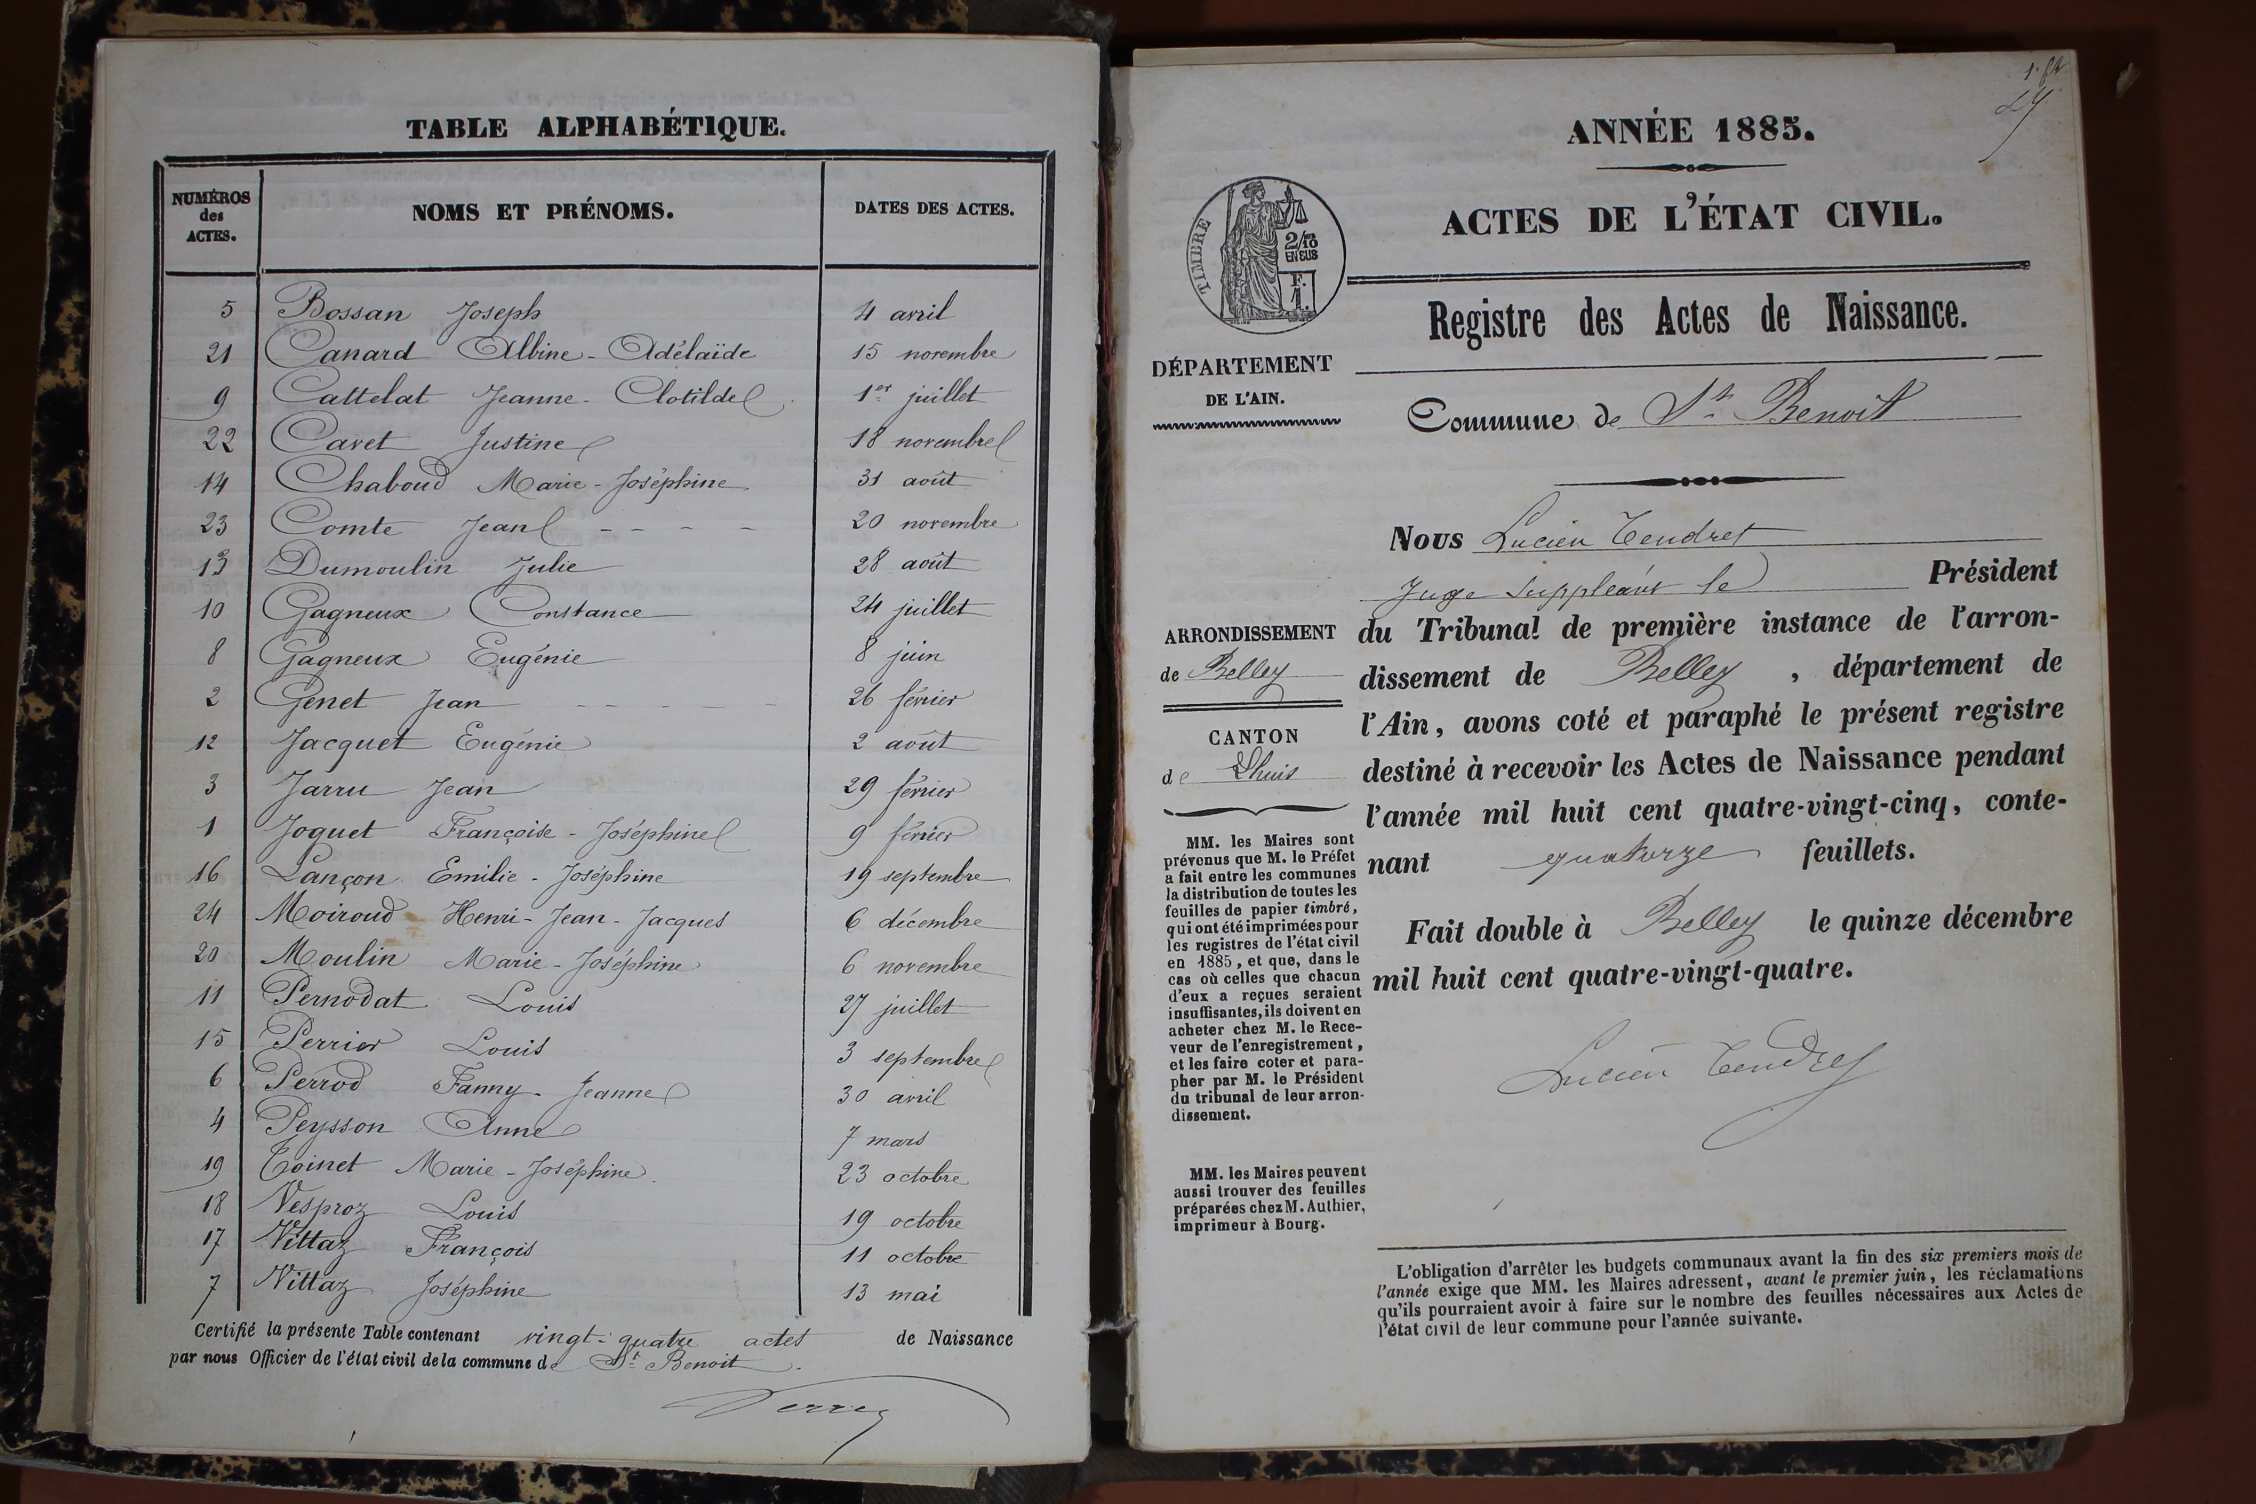 TABLE ALPHABÉTIQUE.
NUMÉROS des ACTES. NOMS ET PRÉNOMS. DATES DES ACTES.
5 Bossan Joseph 4 avril
21 Canard Albine - Adélaïde 15 novembre
9 Cattelat Jeanne - Clotilde 1er juillet
22 Cavet Justine 18 novembre
14 Chaboud Marie - Joséphine 31 août
23 Comte Jean 20 novembre
13 Dumoulin Julie 28 août
10 Gagneux Constance 24 juillet
8 Gagneux Eugénie 8 juin
2 Genet Jean 26 février
12 Jacquet Eugénie 2 août
3 Jarru Jean 29 février
1 Joguet Françoise - Joséphine 9 février
16 Lançon Emilie - Joséphine 19 septembre
24 Moiroud Henri - Jean - Jacques 6 décembre
20 Moulin Marie - Joséphine 6 novembre
11 Pernodat Louis 27 juillet
15 Perrier Louis 3 septembre
6 Perrod Fanny - Jeanne 30 avril
4 Peysson Anne 7 mars
19 Toinet Marie - Joséphine 23 octobre
18 Vesproz Louis 19 octobre
17 Vittaz François 11 octobre
7 Vittaz Joséphine 13 mai
Certifié la présente Table contenant vingt-quatre actes de Naissance
par nous Officier de l'état civil de la commune de St Benoit.
ANNÉE 1885.
ACTES DE L'ÉTAT CIVIL.
TIMBRE
2/10
EN SUS
F.
1.
Registre des Actes de Naissance.
DÉPARTEMENT
DE L'AIN.
Commune de St Benoit
Nous Lucien Tendret
Juge suppléant le Président
du Tribunal de première instance de l'arron-
dissement de Belley, département de
l'Ain, avons coté et paraphé le présent registre
destiné à recevoir les Actes de Naissance pendant
l'année mil huit cent quatre-vingt-cinq, conte-
nant quatorze feuillets.
Fait double à Belley le quinze décembre
mil huit cent quatre-vingt-quatre.
Lucien Tendret
ARRONDISSEMENT
de Belley
CANTON
de Lhuis
MM. les Maires sont
prévenus que M. le Préfet
a fait entre les communes
la distribution de toutes les
feuilles de papier timbré,
qui ont été imprimées pour
les registres de l'état civil
en 1885, et que, dans le
cas où celles que chacun
d'eux a reçues seraient
insuffisantes, ils doivent en
acheter chez M. le Rece-
veur de l'enregistrement,
et les faire coter et para-
pher par M. le Président
du tribunal de leur arron-
dissement.
MM. les Maires peuvent
aussi trouver des feuilles
préparées chez M. Authier,
imprimeur à Bourg.
L'obligation d'arrêter les budgets communaux avant la fin des six premiers mois de
l'année exige que MM. les Maires adressent, avant le premier juin, les réclamations
qu'ils pourraient avoir à faire sur le nombre des feuilles nécessaires aux Actes de
l'état civil de leur commune pour l'année suivante.